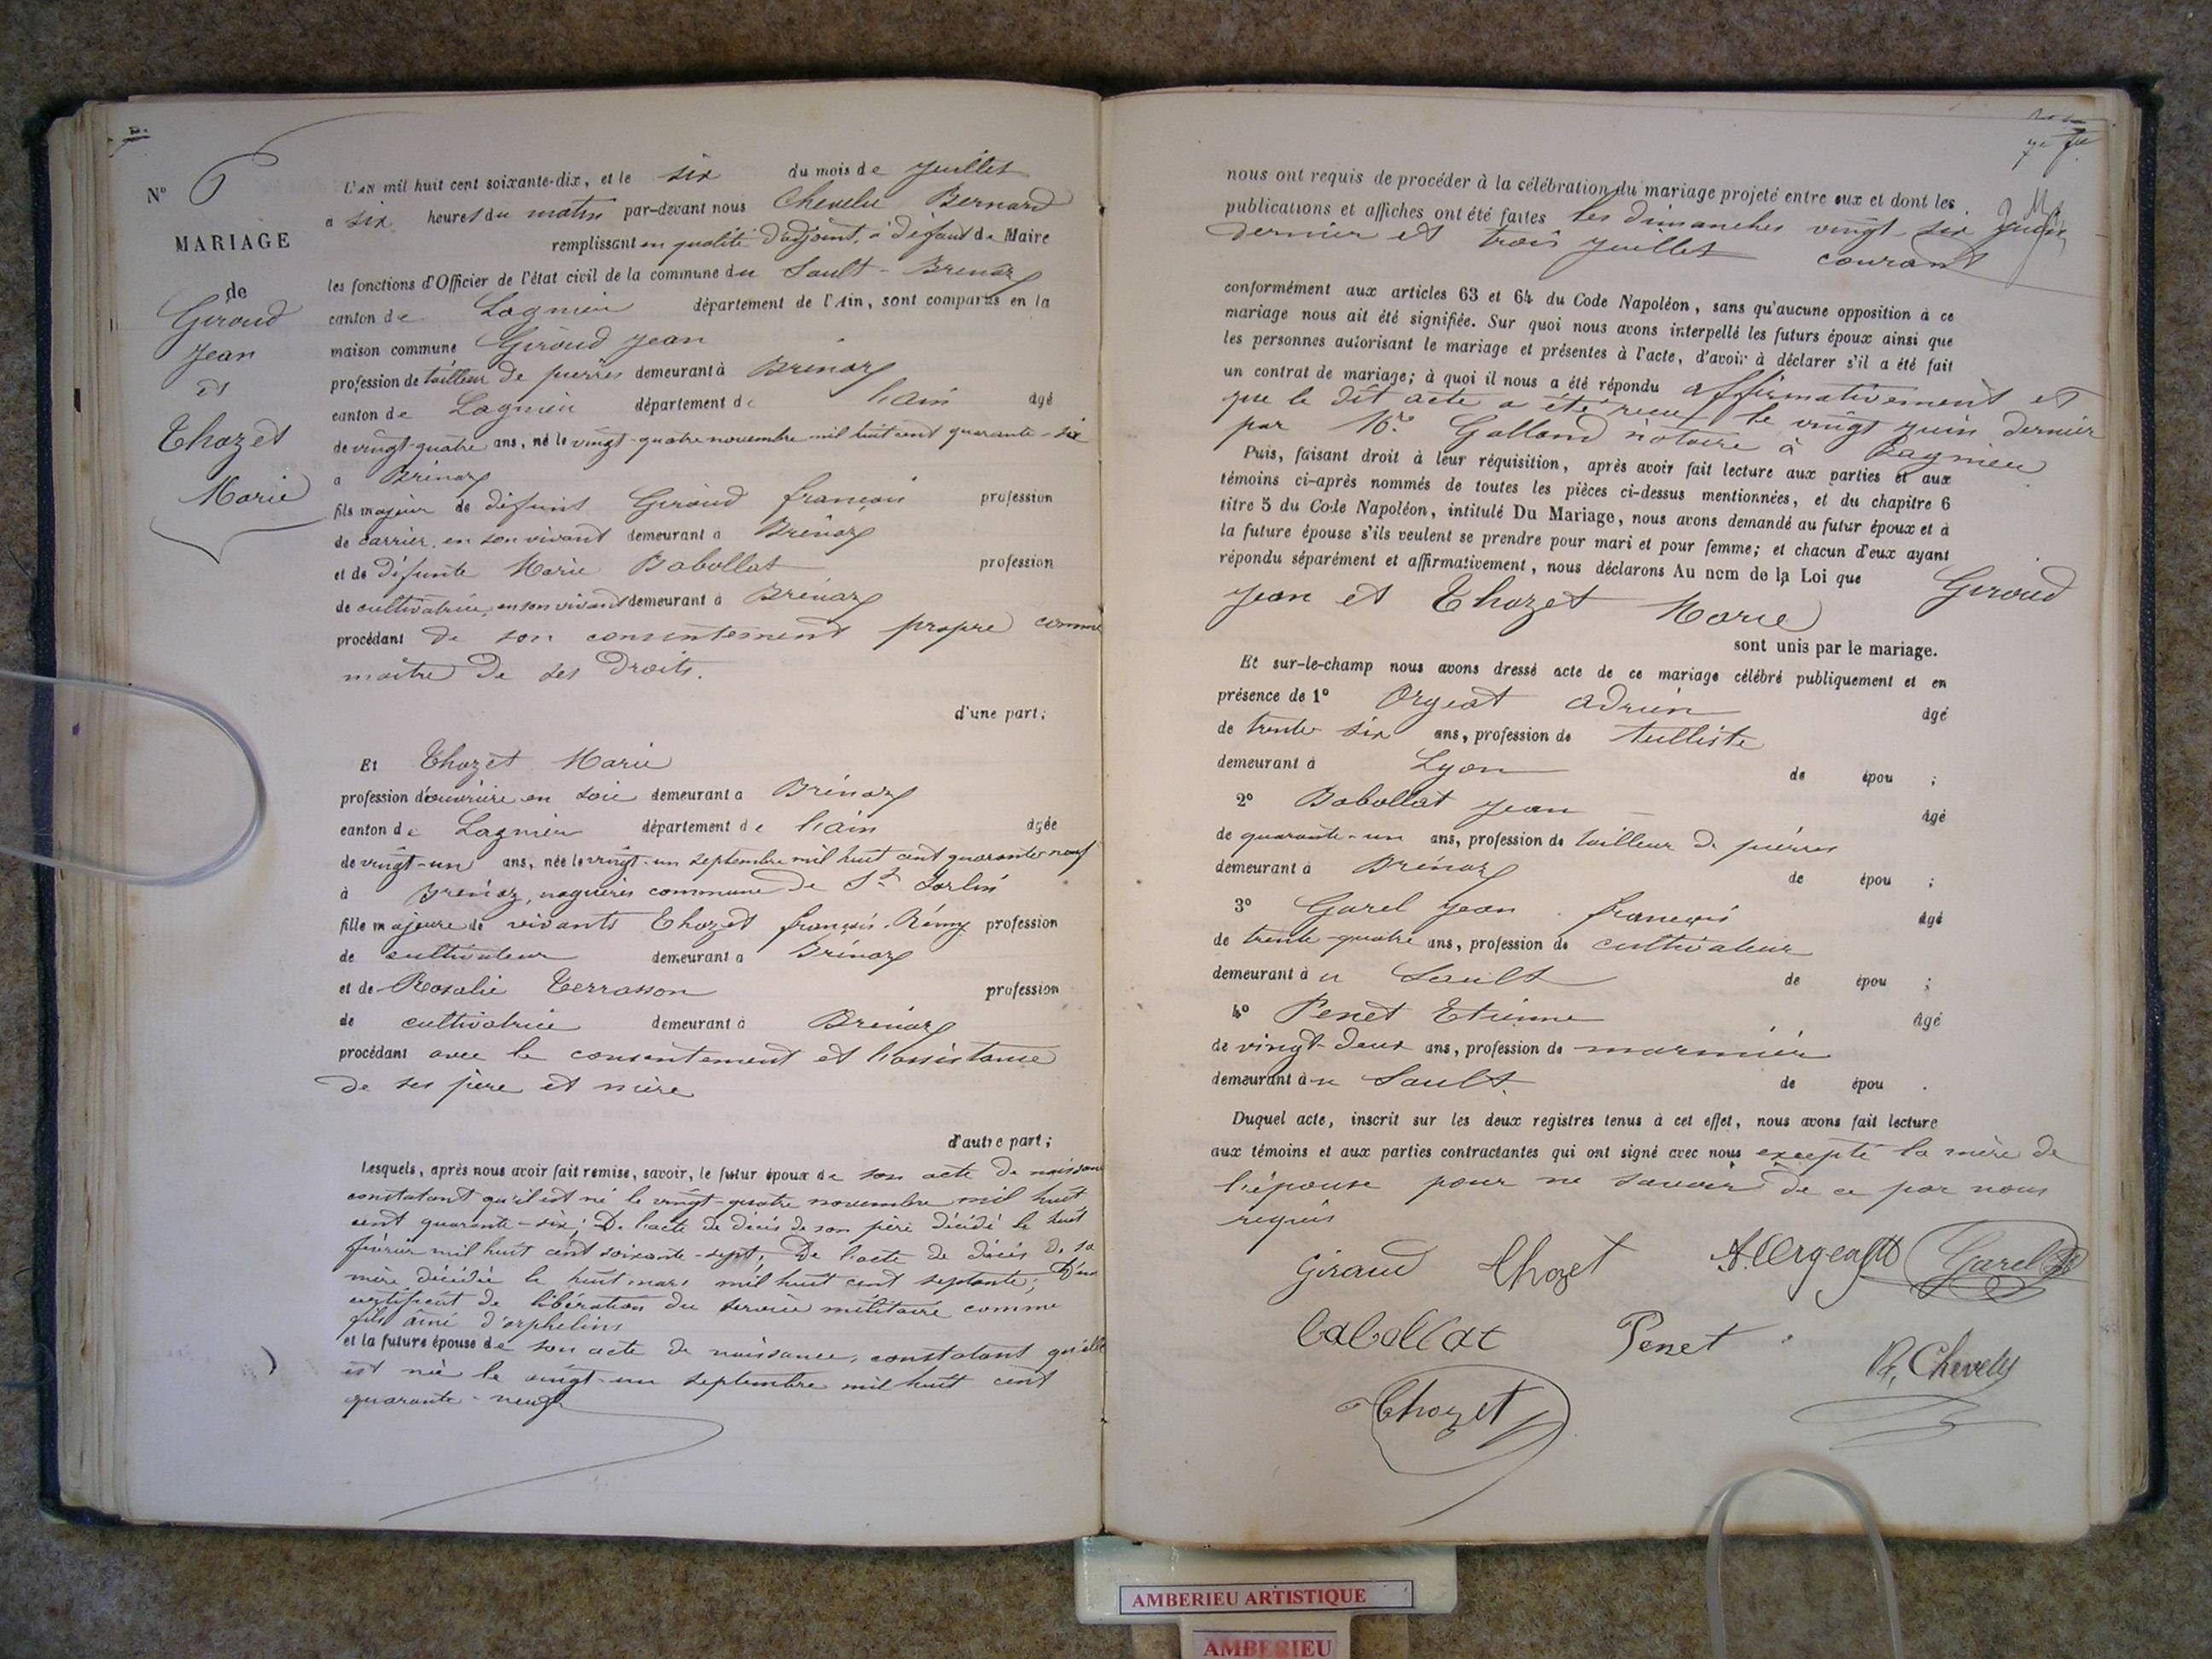 N° 6
MARIAGE
de
Giroud
Jean
et
Thozet
Marie
L'AN mil huit cent soixante-dix, et le six du mois de Juillet
a six heures du matin par-devant nous Chevelu Bernard
remplissant en qualité d'adjoint, à défaut de Maire
les fonctions d'Officier de l'état civil de la commune du Sault-Brénaz
canton de Lagnieu département de l'Ain, sont comparus en la
maison commune Giroud Jean
profession de tailleur de pierres demeurant à Brénaz
canton de Lagnieu département de l'ain âgé
de vingt-quatre ans, né le vingt-quatre novembre mil huit cent quarante-six
a Brénaz
fils majeur de défunt Giroud françois profession
de carrier, en son vivant demeurant a Brénaz
et de défunte Marie Babollat profession
de cultivatrice, en son vivant demeurant à Brénaz
procédant de son consentement propre comme
maître de ses droits.
d'une part;
Et Thozet Marie
profession d'ouvrière en soie demeurant a Brénaz
canton de Lagnieu département de l'ain âgée
de vingt-un ans, née le vingt-un septembre mil huit cent quarante-neuf
à Brénaz, naguères commune de St Sorlin
fille majeure de vivants Thozet françois-Rémy profession
de cultivateur demeurant a Brénaz
et de Rosalie Terrasson profession
de cultivatrice demeurant à Brénaz
procédant avec le consentement et l'assistance
de ses père et mère
d'autre part;
Lesquels, après nous avoir fait remise, savoir, le futur époux de son acte de naissance
constatant qu'il est né le vingt-quatre novembre mil huit
cent quarante-six; De l'acte de décès de son père décédé le huit
février mil huit cent soixante-sept; De l'acte de décès de sa
mère décédée le huit mars mil huit cent septante; D'un
certificat de libération du service militaire comme
fils aîné d'orphelins
et la future épouse de son acte de naissance, constatant qu'elle
est née le vingt-un septembre mil huit cent
quarante-neuf
nous ont requis de procéder à la célébration du mariage projeté entre eux et dont les
publications et affiches ont été faites les dimanches vingt-six Juin
dernier et trois Juillet courant
conformément aux articles 63 et 64 du Code Napoléon, sans qu'aucune opposition à ce
mariage nous ait été signifiée. Sur quoi nous avons interpellé les futurs époux ainsi que
les personnes autorisant le mariage et présentes à l'acte, d'avoir à déclarer s'il a été fait
un contrat de mariage; à quoi il nous a été répondu affirmativement et
que le dit acte a été reçu le vingt juin dernier
par Me Galland notaire à Lagnieu
Puis, faisant droit à leur réquisition, après avoir fait lecture aux parties et aux
témoins ci-après nommés de toutes les pièces ci-dessus mentionnées, et du chapitre 6
titre 5 du Code Napoléon, intitulé Du Mariage, nous avons demandé au futur époux et à
la future épouse s'ils veulent se prendre pour mari et pour femme; et chacun d'eux ayant
répondu séparément et affirmativement, nous déclarons Au nom de la Loi que Giroud
Jean et Thozet Marie
sont unis par le mariage.
Et sur-le-champ nous avons dressé acte de ce mariage célébré publiquement et en
présence de 1° Orgeat Adrien âgé
de trente-six ans, profession de tulliste
demeurant à Lyon de épou ;
2° Babollat Jean âgé
de quarante-un ans, profession de tailleur de pierres
demeurant à Brénaz de épou ;
3° Garel Jean françois âgé
de trente-quatre ans, profession de cultivateur
demeurant à u Sault de épou ;
4° Penet Etienne âgé
de vingt-deux ans, profession de marinier
demeurant à u Sault. de épou .
Duquel acte, inscrit sur les deux registres tenus à cet effet, nous avons fait lecture
aux témoins et aux parties contractantes qui ont signé avec nous excepté la mère de
l'épouse pour ne savoir de ce par nous
requis
Giraud Thozet A. Orgeat Garel
babollat Penet B. Chevelu
Thozet
AMBERIEU ARTISTIQUE
AMBERIEU